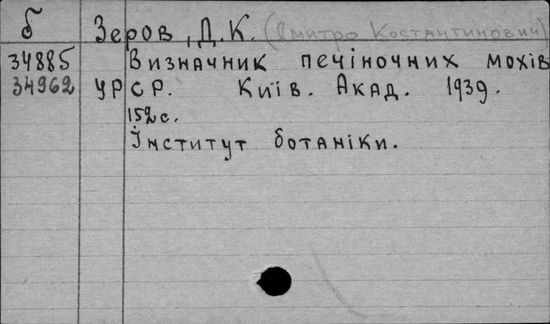 б Зеров, Д. К. (Дмитро Костантинович)
34885 Визначник печіночних мохів
34962 УРСР. Київ. Акад. 1939.
152 с.
Інститут ботаніки.